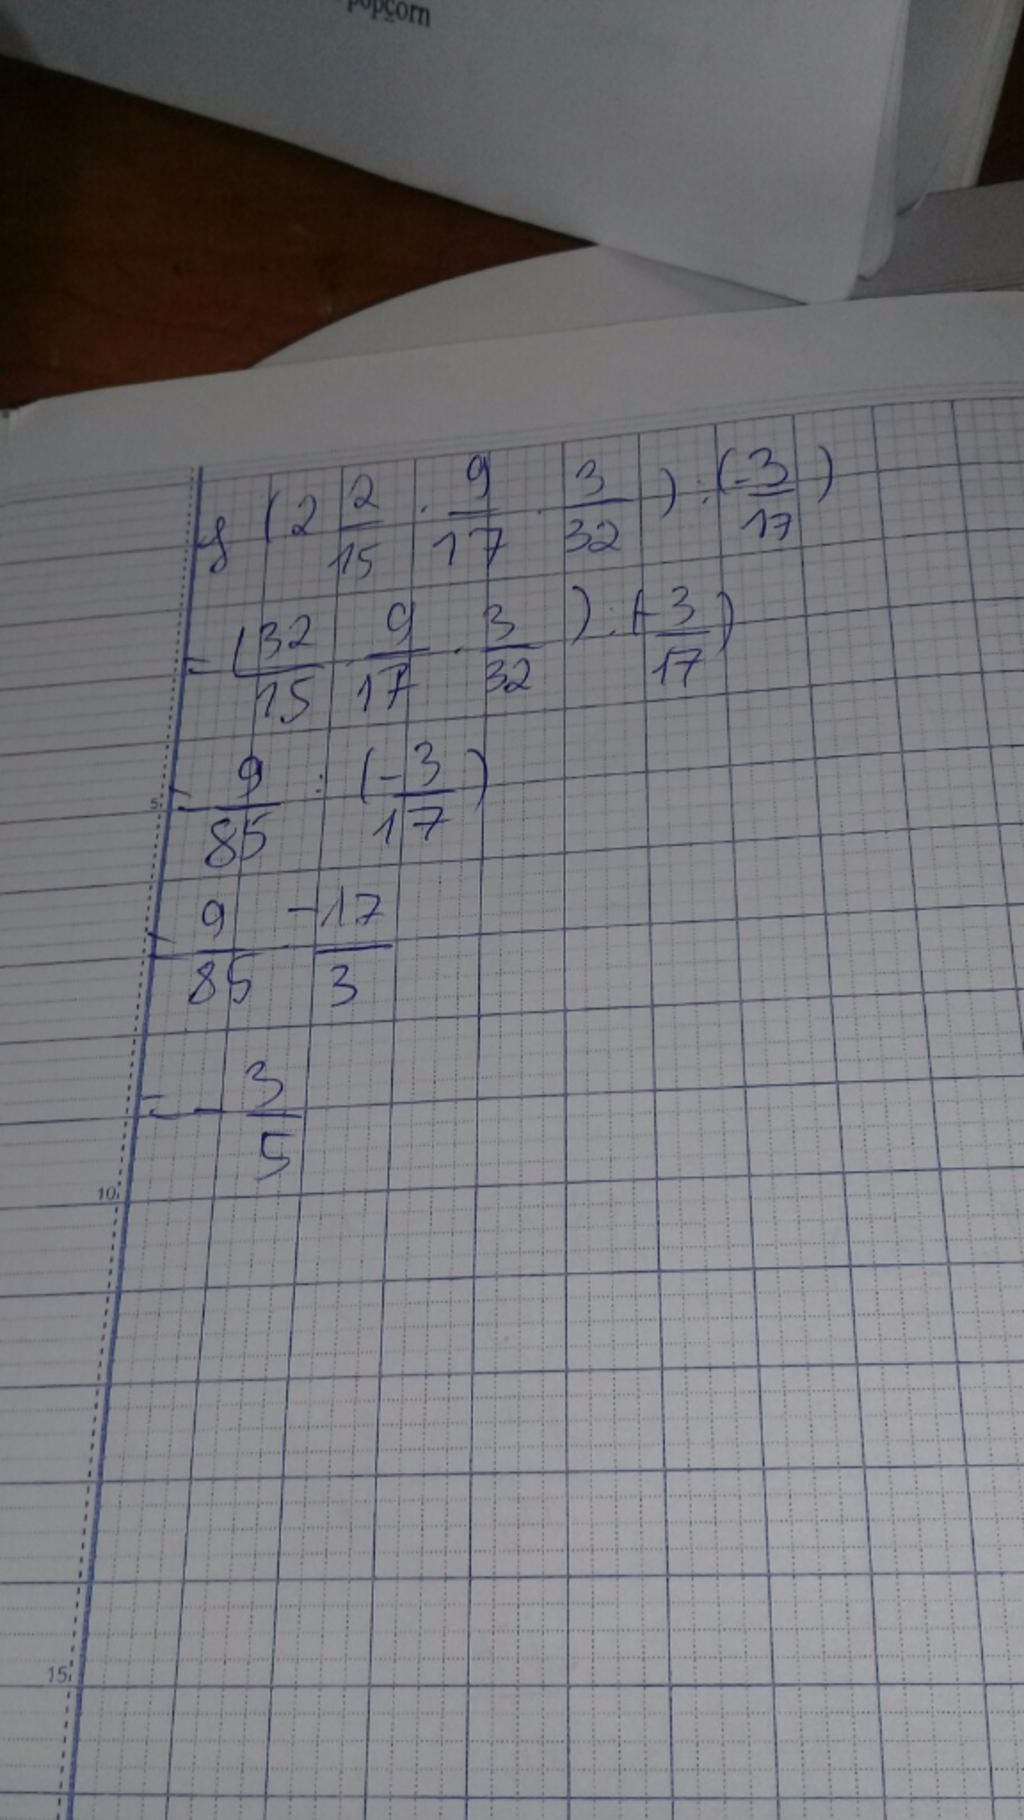 popcorn
g (2 2/15 . 9/17 . 3/32) : (-3/17)
= (32/15 . 9/17 . 3/32) : (-3/17)
= 9/85 : (-3/17)
= 9/85 . -17/3
= - 3/5
5
10
15